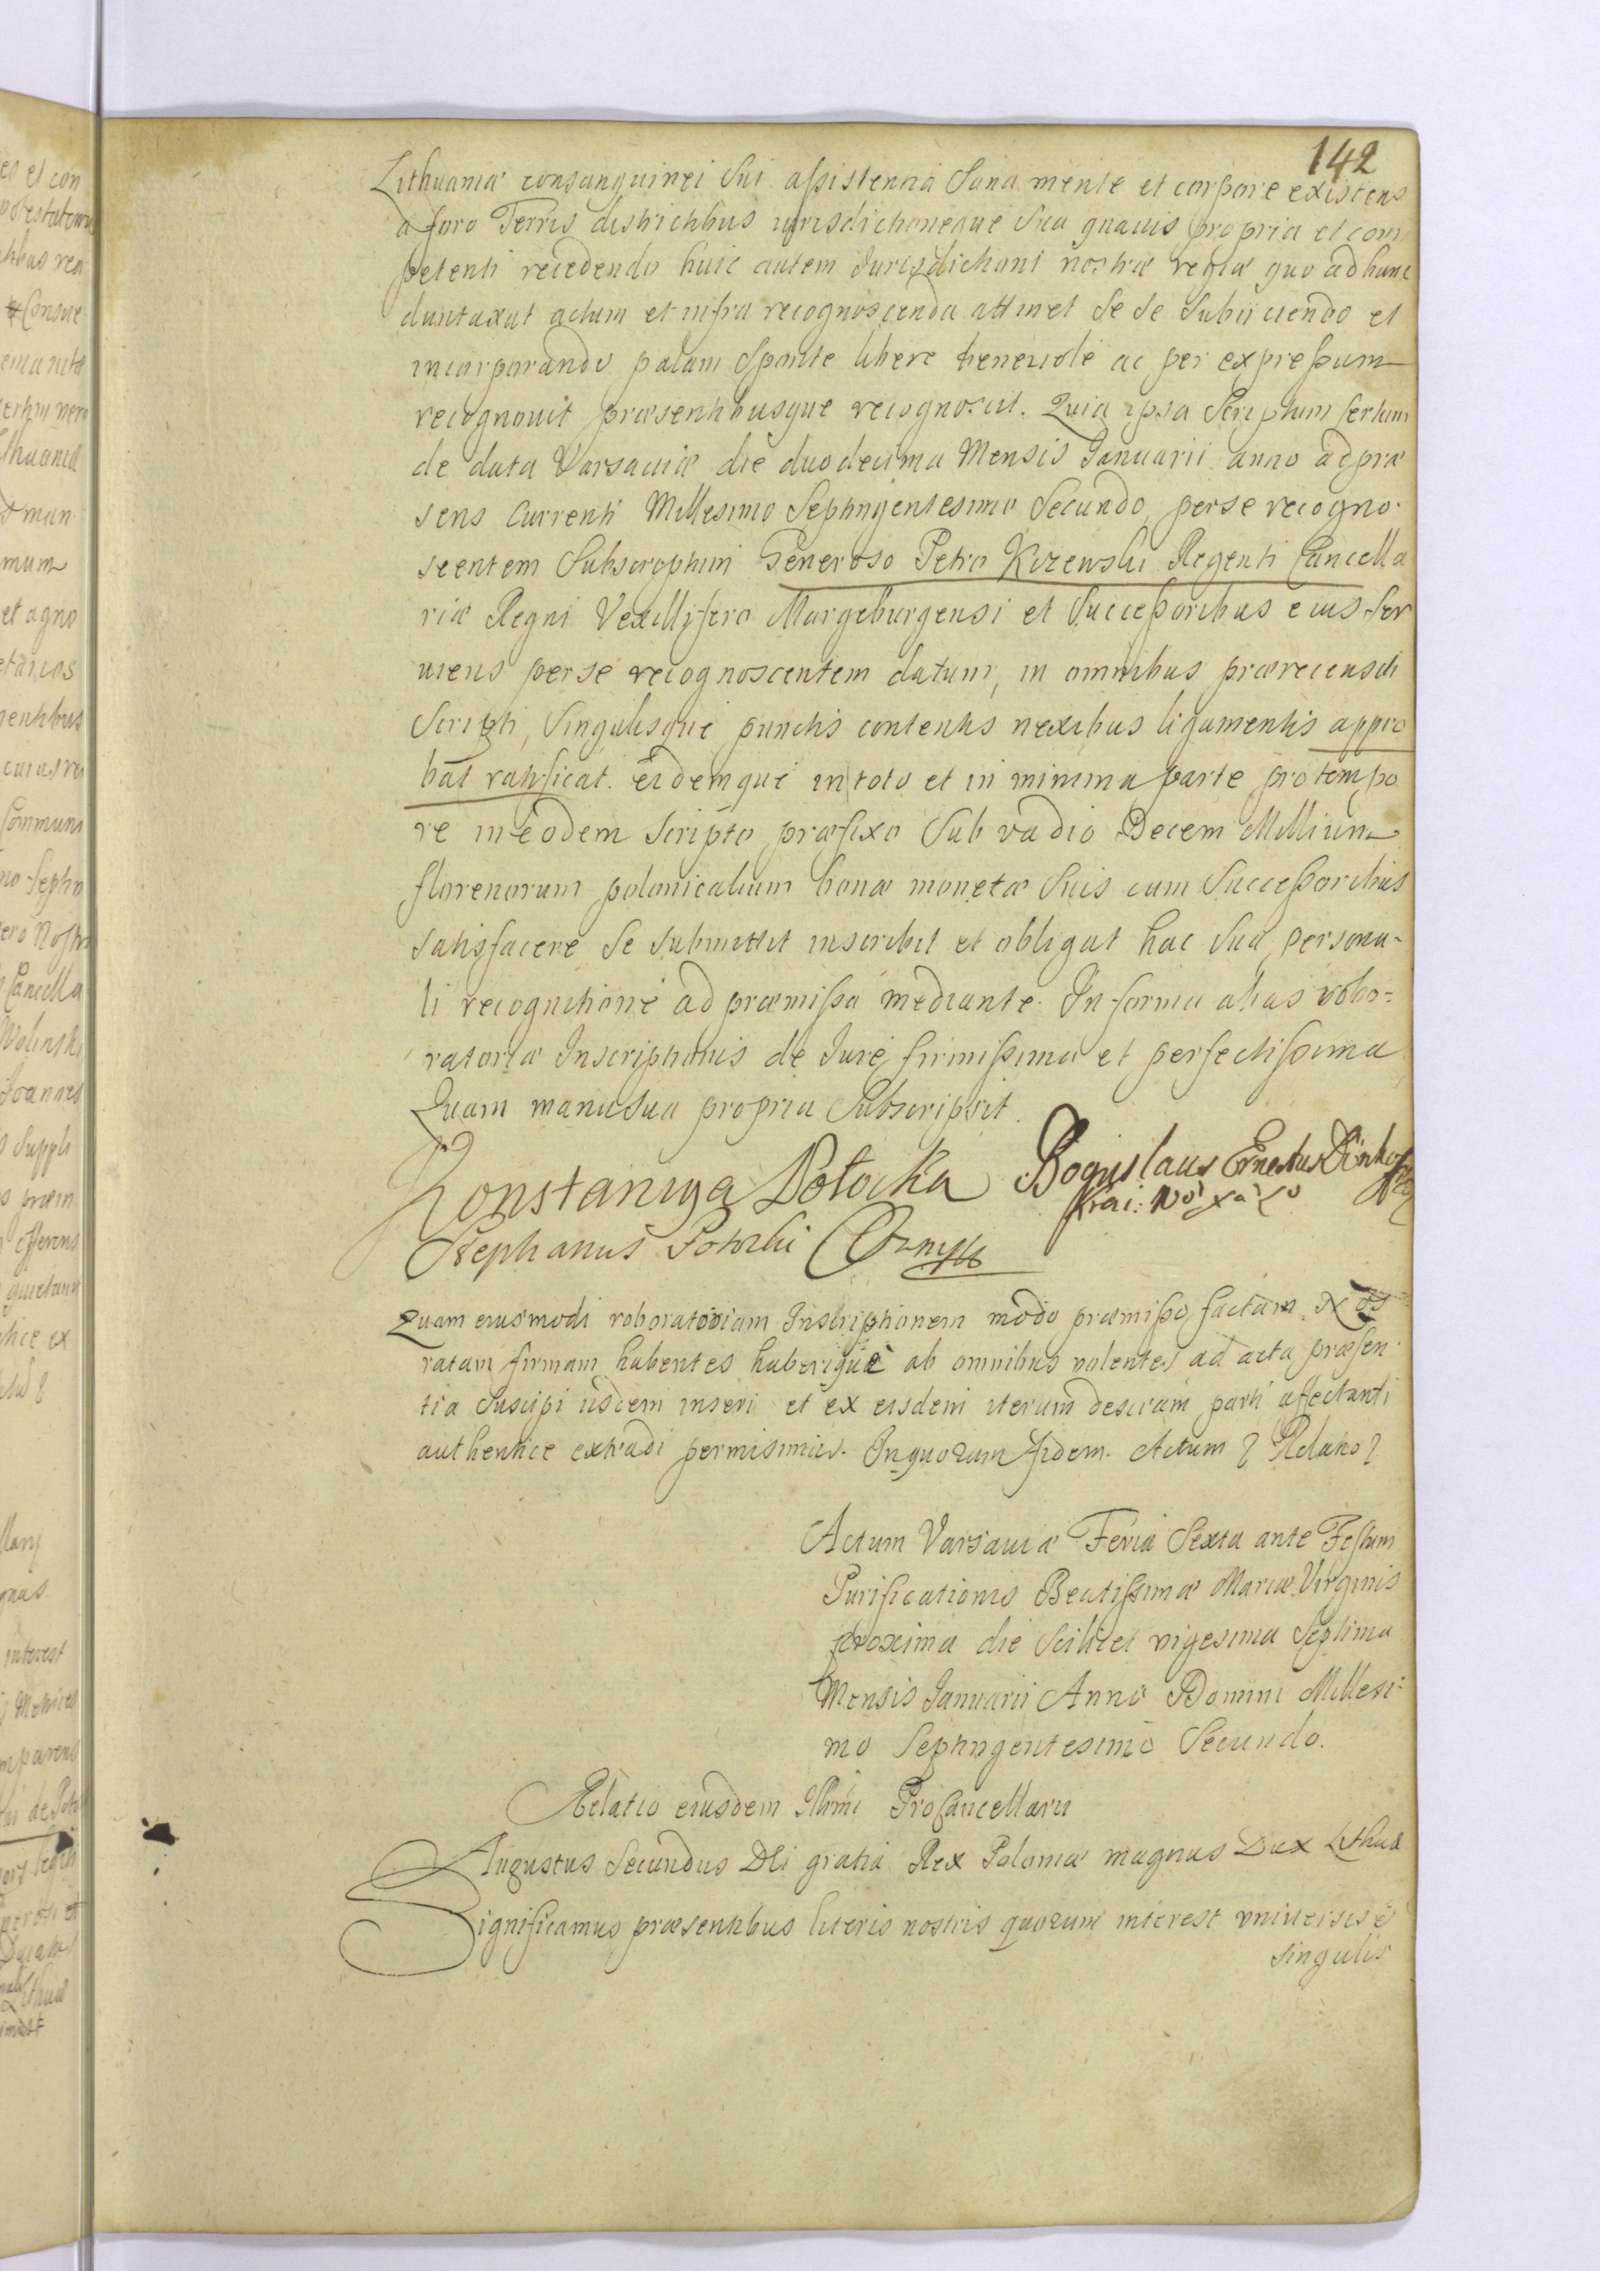 142
Lithuaniæ consanguinei Sui assistentia Sana mente et corpore existens
a foro Terris districtibus iurisdictioneque Sua quauis propria et com
petenti recedendo huic autem Iurisdictioni nostræ regiæ quo ad hunc
duntaxat actum et infra recognoscenda attinet Se Se Subiiciendo et
incorporando palam Sponte libere beneuole ac per expressum
recognouit præsentibusque recognoscit. Quia ipsa Scriptum certum
de data Varsauiæ die duodecima Mensis Ianuarii anno ad præ
sens Currenti Millesimo Septingentesimo Secundo per se recogno
scentem Subscriptum Generoso Petro Kczewski Regenti Cancella
riæ Regni Vexillifero Margeburgensi et Successoribus eius Ser
uiens per se recognoscentem datum, in omnibus prærecensiti
Scripti, Singulisque punctis contentis nexibus ligamentis appro
bat ratificat. eidemque in toto et in minima parte pro tempo
re in eodem Scripto præfixo Sub vadio Decem Millium
florenorum polonicalium bonæ monetæ Suis cum Successoribus
satisfacere Se Submittit inscribit et obligat hac Sua persona-
li recognitione ad præmissa mediante. In forma alias robo=
ratoriæ Inscriptionis de Iure firmissima et perfectissima
Quam manu Sua propria Subscripsit.
Konstancyia Potocka Boguslaus Ernestus Dönhoff
Stephanus Potocki
Quam eiusmodi roboratoriam Inscriptionem modo præmisso factam Nos
ratam firmam habentes haberique ab omnibus volentes ad acta præsen
tia Suscipi iisdem inseri et ex eisdem iterum descriptam parti affectanti
authentice extradi permisimus. In quorum fidem. Actum Relatio
Actum Varsauiæ Feria Sexta ante Festum
Purificationis Beatissimæ Mariæ Virginis
proxima die Scilicet vigesima Septima
Mensis Ianuarii Anno Domini Millesi
mo Septingentesimo Secundo.
Relatio eiusdem Illmi Procancellarii
Augustus Secundus Dei gratia Rex Poloniæ magnus Dux Lithuæ
Significamus præsentibus literis nostris quorum interest vniuersis et
singulis